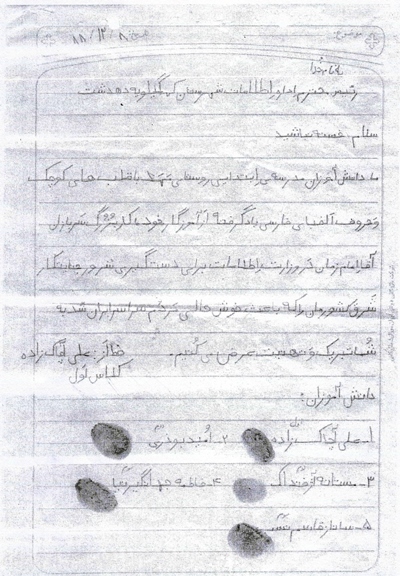 موضوع: تاریخ ۸۸/۱۲/۸
بنام خدا
رئیس محترم اداره اطلاعات شهرستان کهگیلویه دهدشت
سلام. خسته نباشید
ما دانش آموزان مدرسه ی ابتدایی روستای با قلب های کوچک
و حروف الفبای فارسی یاد گرفته از آموزگار خود، کار بزرگ سربازان
آقا امام زمان در وزارت اطلاعات برای دست گیری شرور جنایتکار
شرق کشورمان را که باعث خوش حالی مردم سراسر ایران شد به
شما تبریک و تهنیت عرض می کنیم. خط از: علی آچاک زاده
کلاس اول
دانش آموزان:
۱- علی آچاک زاده ۲- امید بودری
۳- مستانه ۴- فاطمه جهانگیر نیا
۵- ساناز قاسم